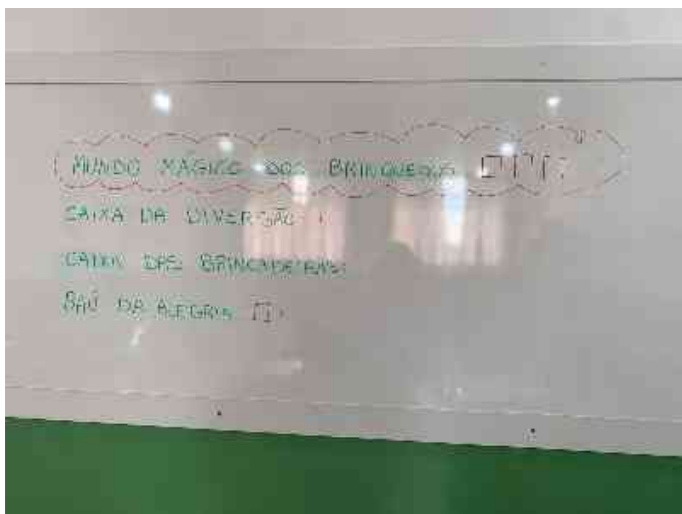 MUNDO MÁGICO DOS BRINQUEDOS
CAIXA DA DIVERSÃO
CAIXA DAS BRINCADEIRAS
BAÚ DA ALEGRIA